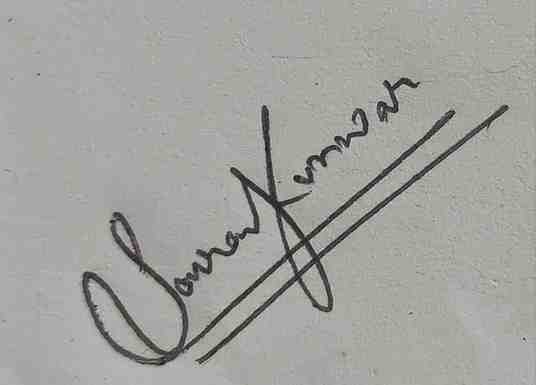 Sourav Kunwar